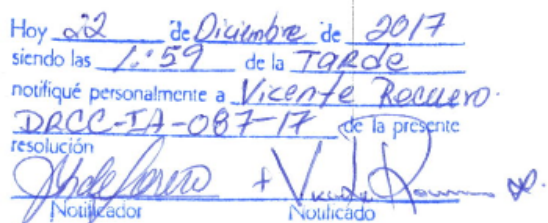 Hoy 22 de Diciembre de 2017
siendo las 1:59 de la TARDE
notifiqué personalmente a Vicente Recuero.
DRCC-IA-087-17 de la presente
resolución
Notificador Notificado